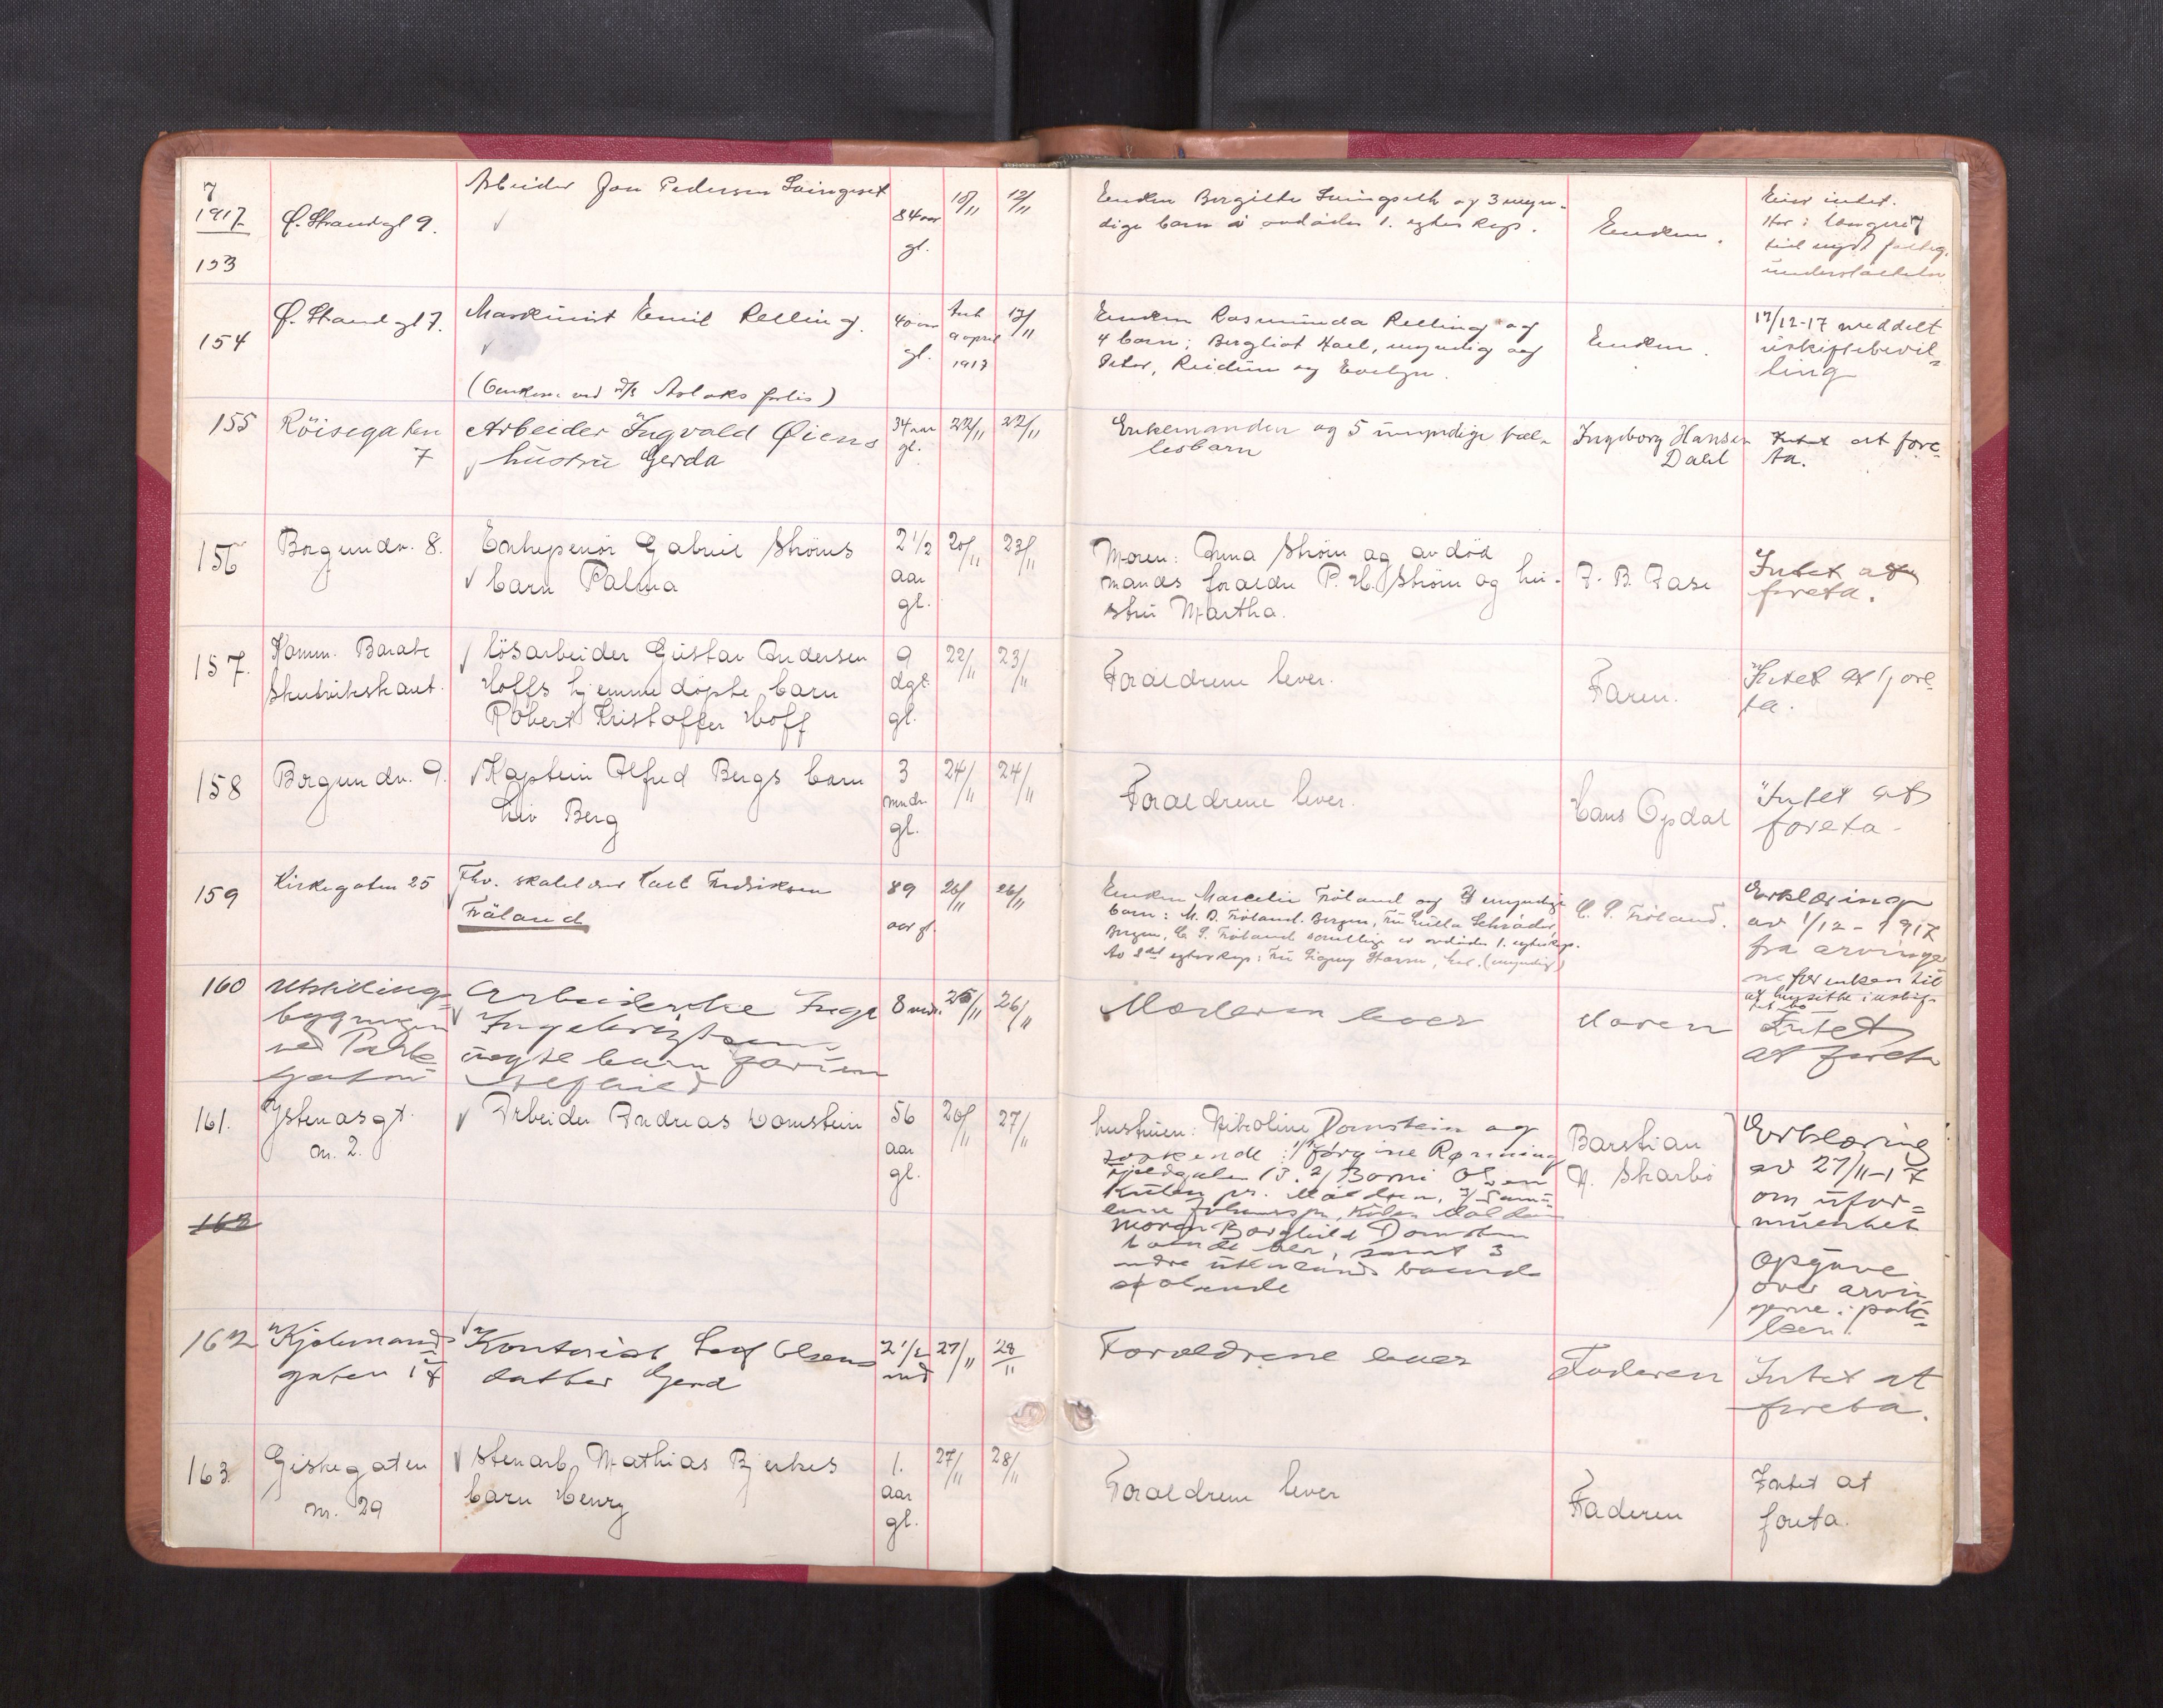 7
1917
153
Ø. Strandgt 9.
Arbeider Jon Pedersen Svingset
84 aar
gl.
10/11
12/11
Enken Bergitte Svingseth og 3 myn-
dige barn i avdødes 1. egteskap.
Enken.
Eier intet.
Har i længere
tid nydt fattig
understøttelse
154
Ø. Strandgt 7.
Maskinist Emil Relling.
40 aar
gl.
april
1917
17/11
Enken Rasmunda Relling og
4 barn: Bergliot Kael, myndig og
Peter, Reidun og Evelyn.
Enken.
17/12-17 meddelt
uskiftebevil-
ling
(Omkom ved D/S Aslaks forlis)
155
Röisegaten
7
Arbeider Ingvald Øiens
hustru Gerda
34 aar
gl.
22/11
22/11
Enkemanden og 5 umyndige fæl-
lesbarn
Ingeborg Hansen
Dahl
Intet at fore-
ta.
156
Borgundv. 8.
Entrepenör Gabriel Ströms
barn Palma
2 1/2
aar
gl.
20/11
23/11
Moren: Anna Ström og avdöd
mands foraeldre P. H. Ström og hu-
stru Martha.
F. B. Aase
Intet at
foreta.
157.
Komm. Barake
Skutvikskaret.
lösarbeider Gustav Andersen
Hoffs hjemmedöpte barn
Robert Kristoffer Hoff
9
dgr.
gl.
22/11
23/11
Foraeldrene lever.
Faren.
Intet at fore-
ta.
158
Borgundv. 9.
Kaptein Alfred Bergs barn
Liv Berg
3
mndr
gl.
24/11
24/11
Foraeldrene lever.
Hans Opdal
Intet at
foreta.
159
Kirkegaten 25
Fhv. Karl Fredriksen
Fröland
89
aar gl.
26/11
26/11
Enken Marcelie Fröland og 4 myndige
barn: M. D. Fröland. Bergen, Fru Schröder,
Bergen, C. P. Fröland samtlige av avdødes 1. egteskap.
Av 2det egteskap: Fru Signy (myndig)
C. P. Fröland.
Erklæring
av 1/12-1917
fra arvinger
ne for enken til
at hensitte i uskif-
tet bo
160
Utstillings-
bygningen
ved Park
gaten
Arbeiderske Inga
Ingebrigtsen
uegte barn
8 mdr.
25/11
26/11
Moderen lever
Moren
Intet
at foreta
161.
Ystenæsgt.
nr. 2.
Arbeider Andreas Domstein
56
aar
gl.
26/11
27/11
hustruen: Nikoline Domstein og
søskende: 1/ Jørgine Rønning
Fjeldgaten 13. 2/ Borni Olsen
Moren Borghild Domstein
boende her, samt 3
andre utenlands boende
søskende
Barstian
A. Skarbö
Erklæring
av 27/11-17
om ufor-
muenhet
Opgave
over arvin-
gerne i
162
162
Kjølemands
gaten 17
Kontorist Leif Olsens
datter Gerd
2 1/2
md
27/11
28/11
Forældrene lever
Faderen
Intet at
foreta.
163.
Giskegaten
nr. 29
Stenarb. Mathias Bjerkes
barn Henry
1.
aar
gl.
27/11
28/11
Foraeldrene lever
Faderen
Intet at
foreta.